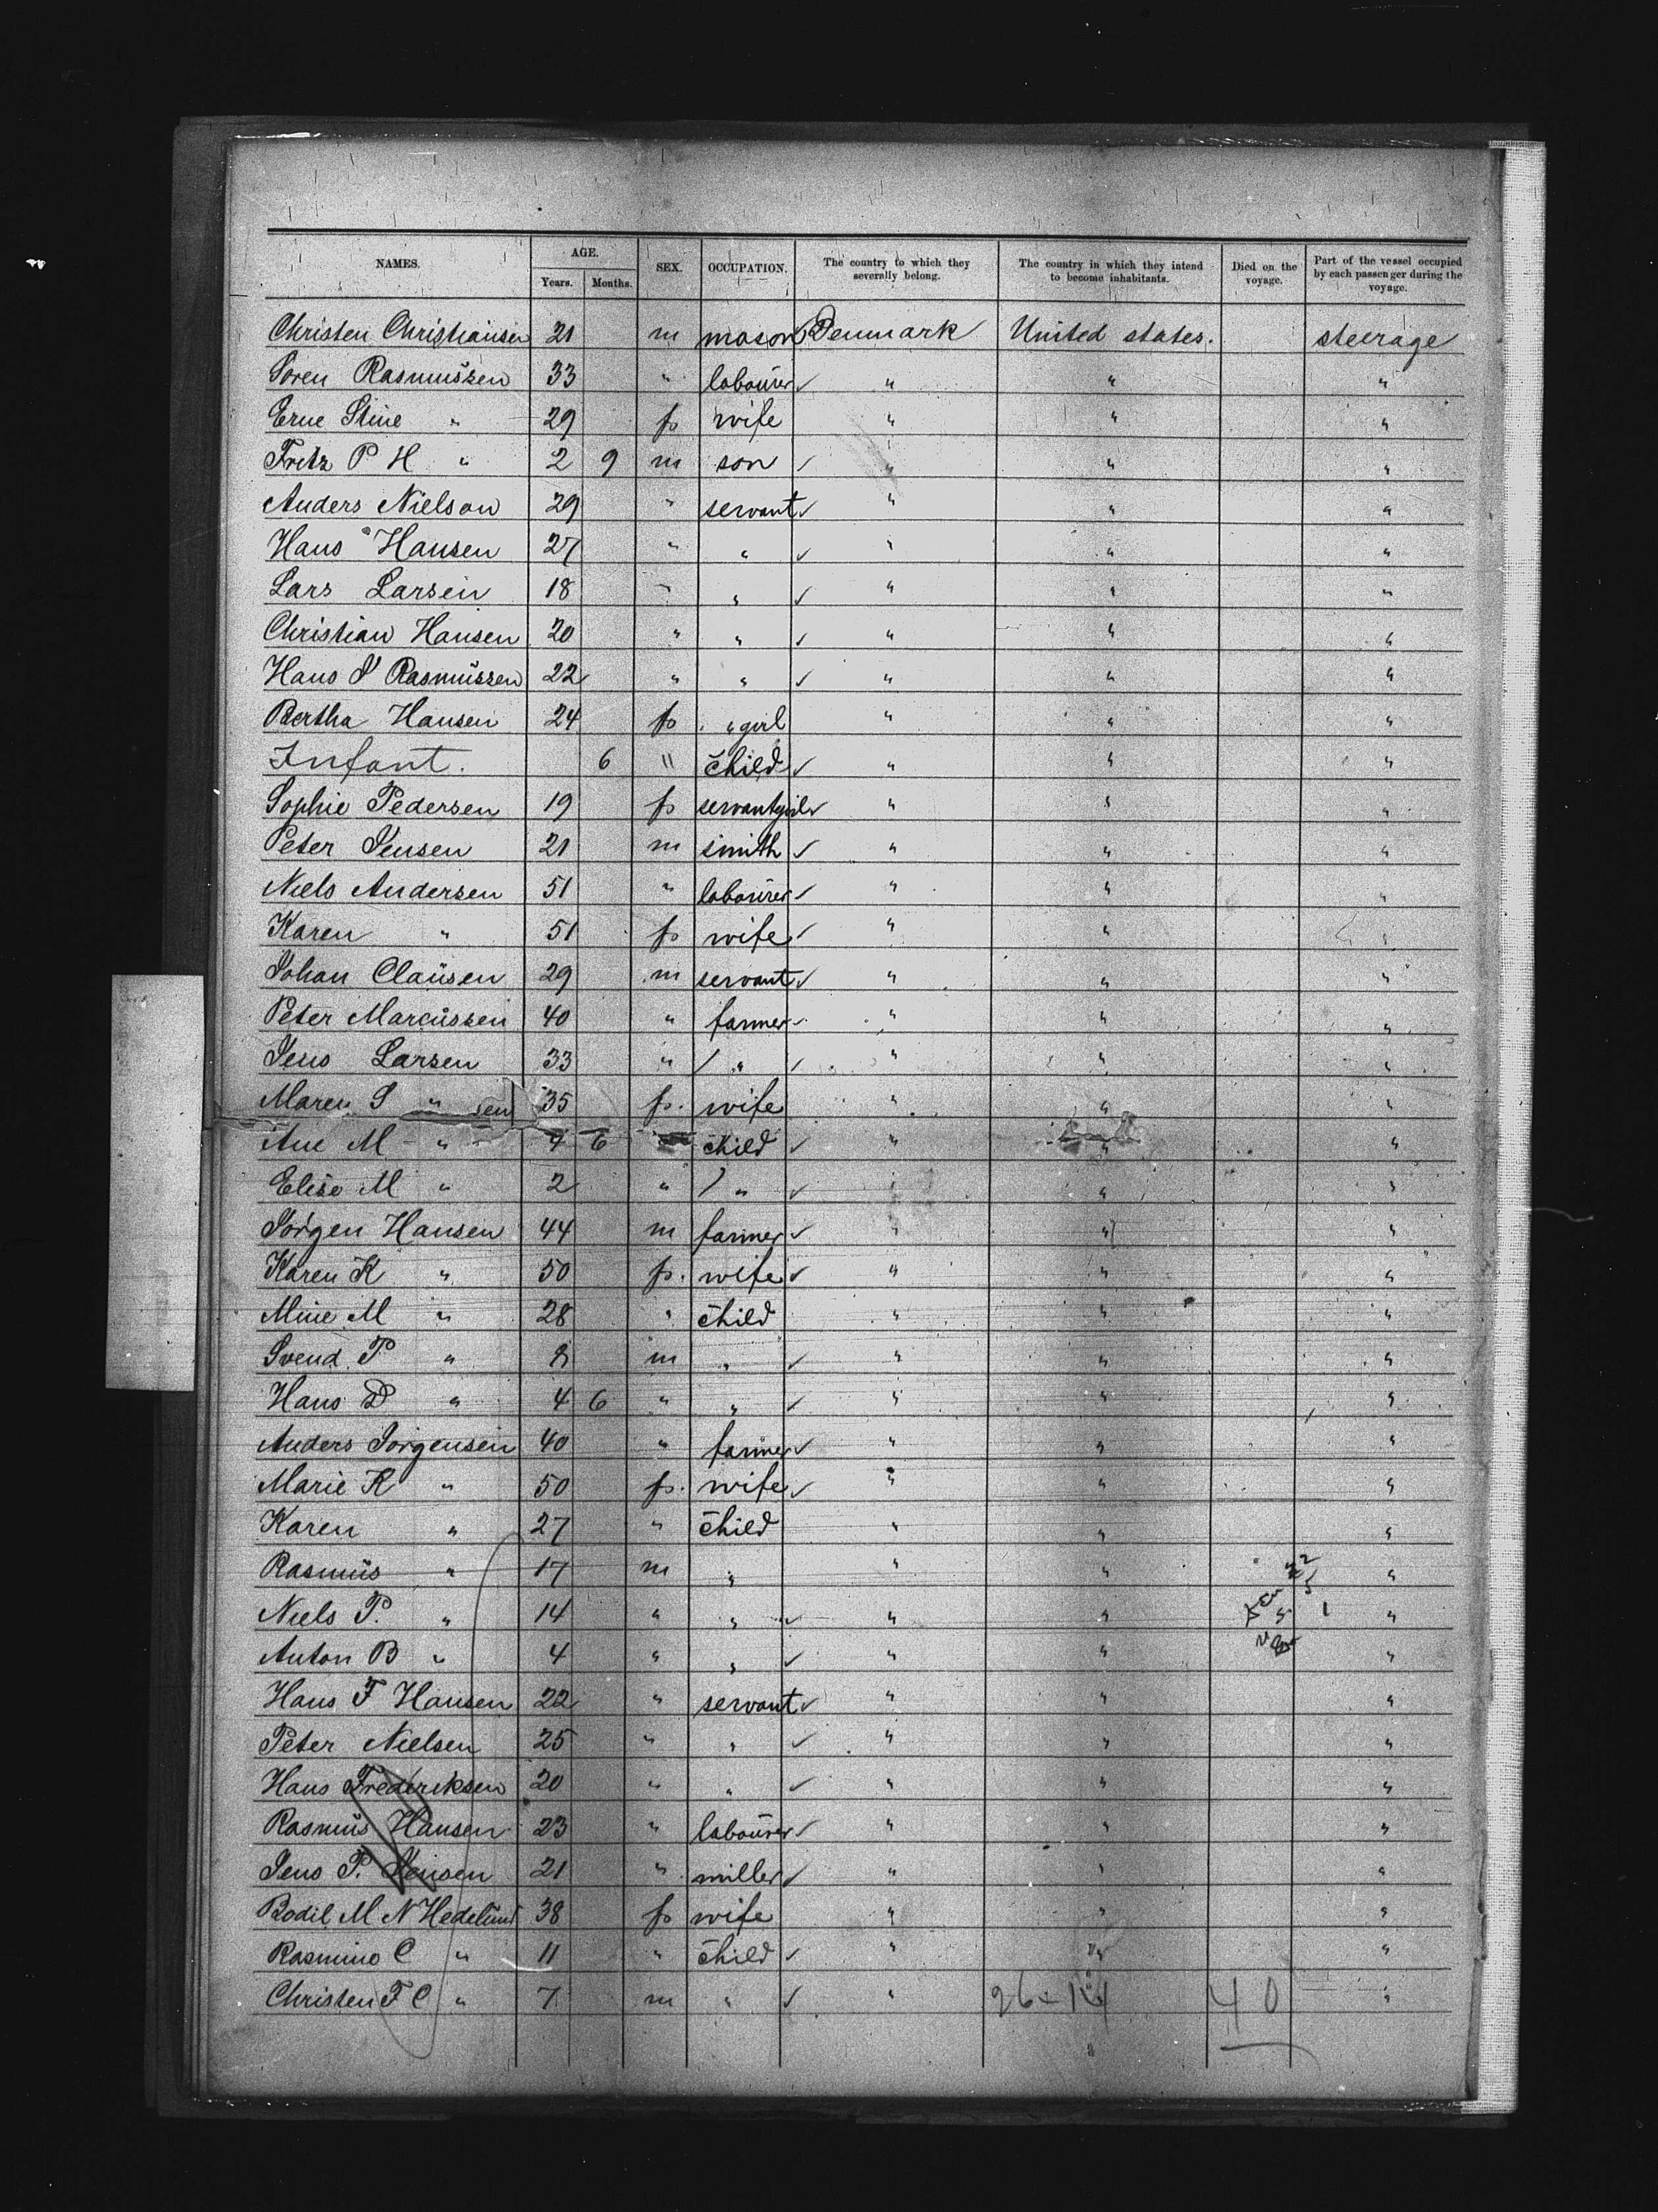 NAMES. AGE. SEX. OCCUPATION. The country to which they severally belong. The country in which they intend to become inhabitants. Died on the voyage. Part of the vessel occupied by each passenger during the voyage.
Years. Months.
Christen Christiansen 21 m mason Denmark United states. steerage
Soren Rasmussen 33 " labourer " " "
Erne Stine " 29 f wife " " "
Fritz P H " 2 9 m son " " "
Anders Nielson 29 " servant " " "
Hans Hansen 27 " " " " "
Lars Larsen 18 " " " " "
Christian Hansen 20 " " " " "
Hans J Rasmussen 22 " " " " "
Bertha Hansen 24 f " girl " " "
Infant. 6 " child " " "
Sophie Pedersen 19 f servantgirl " " "
Peter Jensen 21 m smith " " "
Niels Andersen 51 " labourer " " "
Karen " 51 f wife " " "
Johan Clausen 29 m servant " " "
Peter Marcussen 40 " farmer " " "
Jens Larsen 33 " " " " "
Maren S " 35 f. wife " " "
Ane M " 6 child " " "
Elise M " 2 " " " " "
Jorgen Hansen 44 m farmer " " "
Karen K " 50 f. wife " " "
Mine M " 28 " child " " "
Svend P " 8 m " " " "
Hans D " 4 6 " " " " "
Anders Jorgensen 40 " farmer " " "
Marie K " 50 f. wife " " "
Karen " 27 " child " " "
Rasmus " 17 m " " " "
Niels P. " 14 " " " " "
Anton B " 4 " " " " "
Hans F Hansen 22 " servant " " "
Peter Nielsen 25 " " " " "
Hans Frederiksen 20 " " " " "
Rasmus Hansen 23 " labourer " " "
Jens P. Jensen 21 " miller " " "
Bodil M N Hedelund 38 f wife " " "
Rasmine C " 11 " child " " "
Christen F C " 7 m " " 26-14 40 "